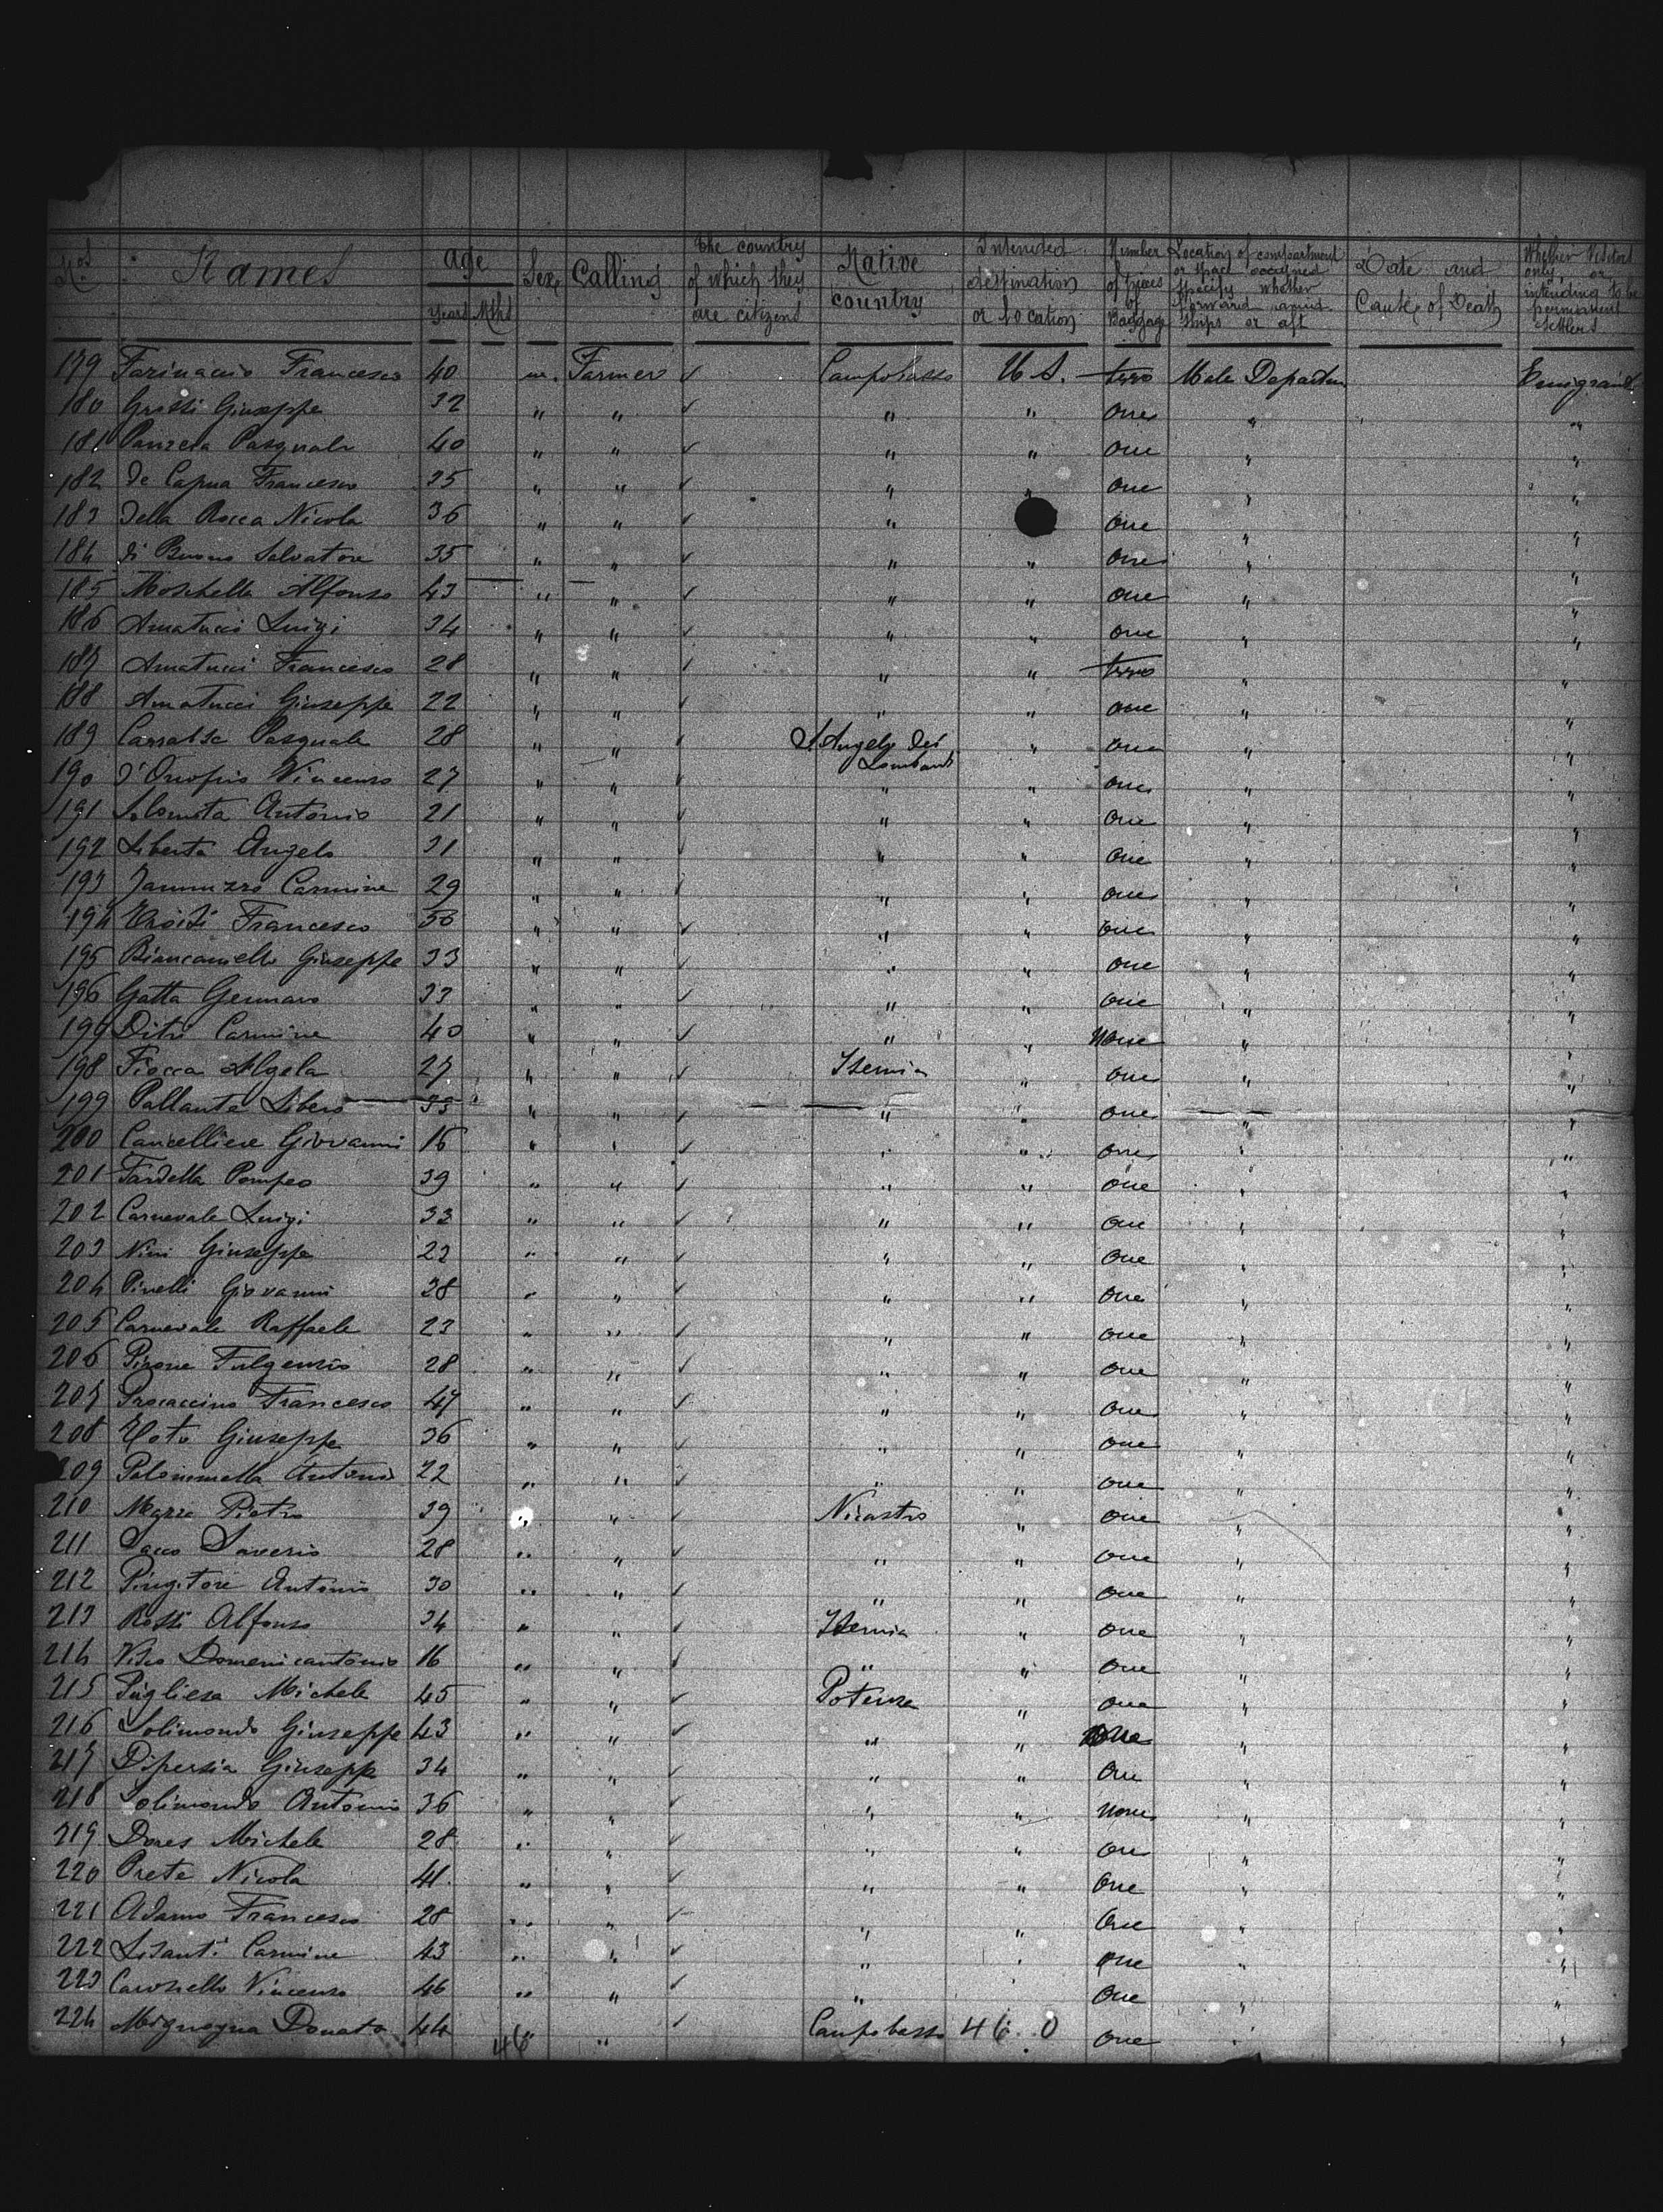 Nos Names Age Years Mths Sex Calling The country of which they are citizens Native country Intended destination or location Number of pieces of Baggage Location of compartment or space occupied specify whether forward amid ships or aft Date and Cause of Death Whether Visitors only or intending to be permanent settlers
179 Farinaccio Francesco 40 m. Farmer ✓ Campobasso U S. two Male Departm Emigrants
180 Grossi Giuseppe 32 " " ✓ " " one " "
181 Panzera Pasquale 40 " " ✓ " " one " "
182 De Capua Francesco 35 " " ✓ " " one " "
183 Della Rocca Nicola 36 " " ✓ " one " "
184 Di Buono Salvatore 35 " " ✓ " " one " "
185 Moschella Alfonso 43 " " ✓ " " one " "
186 Amatucci Luigi 34 " " ✓ " " one " "
187 Amatucci Francesco 28 " " ✓ " " two " "
188 Amatucci Giuseppe 22 " " ✓ " " one " "
189 Pasquale 28 " " ✓ S. Angelo dei Lombardi " one " "
190 D'Onofrio Vincenzo 27 " " ✓ " " one " "
191 Antonio 21 " " ✓ " " one " "
192 Liberta Angelo 31 " " ✓ " " one " "
193 Jannuzzo Carmine 29 " " ✓ " " one " "
194 Francesco " " ✓ " " one " "
195 Biancaniello Giuseppe 33 " " ✓ " " one " "
196 Gatta Gennaro 33 " " ✓ " " one " "
197 Ditri Carmine 40 " " ✓ " " None " "
198 Fiocca 27 " " ✓ Isernia " one " "
199 Pallante Libero 33 " " ✓ " " one " "
200 Cancelliere Giovanni 16 " " ✓ " " one " "
201 Fardella Pompeo 39 " " ✓ " " one " "
202 Carnevale Luigi 33 " " ✓ " " one " "
203 Nini Giuseppe 23 " " ✓ " " one " "
204 Pinelli Giovanni 38 " " ✓ " " one " "
205 Carnevale Raffaele 23 " " ✓ " " one " "
206 Pirone Fulgenzio 28 " " ✓ " " one " "
207 Procaccino Francesco 47 " " ✓ " " one " "
208 Giuseppe 36 " " ✓ " " one " "
209 Antonio 22 " " ✓ " " one " "
210 Pietro 39 " " ✓ Nicastro " one " "
211 Sacco Saverio 28 " " ✓ " " one " "
212 Pingitore Antonio 30 " " ✓ " " one " "
213 Rossi Alfonso 34 " " ✓ Isernia " one " "
214 Domenicantonio 16 " " ✓ " " one " "
215 Pugliese Michele 45 " " ✓ Potenza " one " "
216 Solimando Giuseppe 43 " " ✓ " " " "
217 Dipersia Giuseppe 34 " " ✓ " " One " "
218 Solimando Antonio 36 " " ✓ " " None " "
219 Michele 28 " " ✓ " " One " "
220 Prete Nicola 41 " " ✓ " " One " "
221 Adamo Francesco 28 " " ✓ " " One " "
222 Lisanti Carmine 43 " " ✓ " " One " "
223 Vincenzo 46 " " ✓ " One " "
224 Mignogna Donato 44 " " ✓ Campobasso 46 0 one " "
46